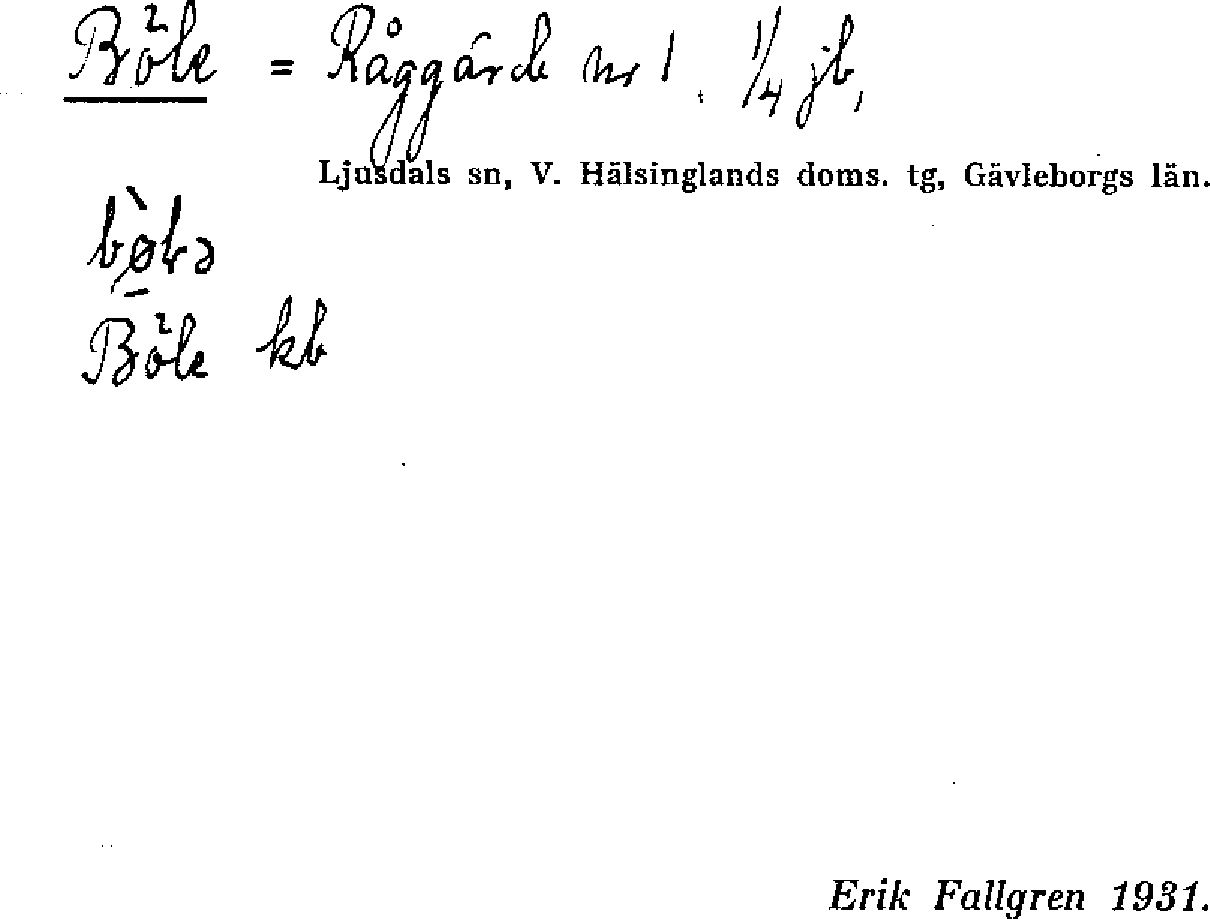 Böle = Råggärde nr 1. 1/4 jb,
Ljusdals sn, V. Hälsinglands doms. tg, Gävleborgs län.
Böle kb
Erik Fallgren 1931.